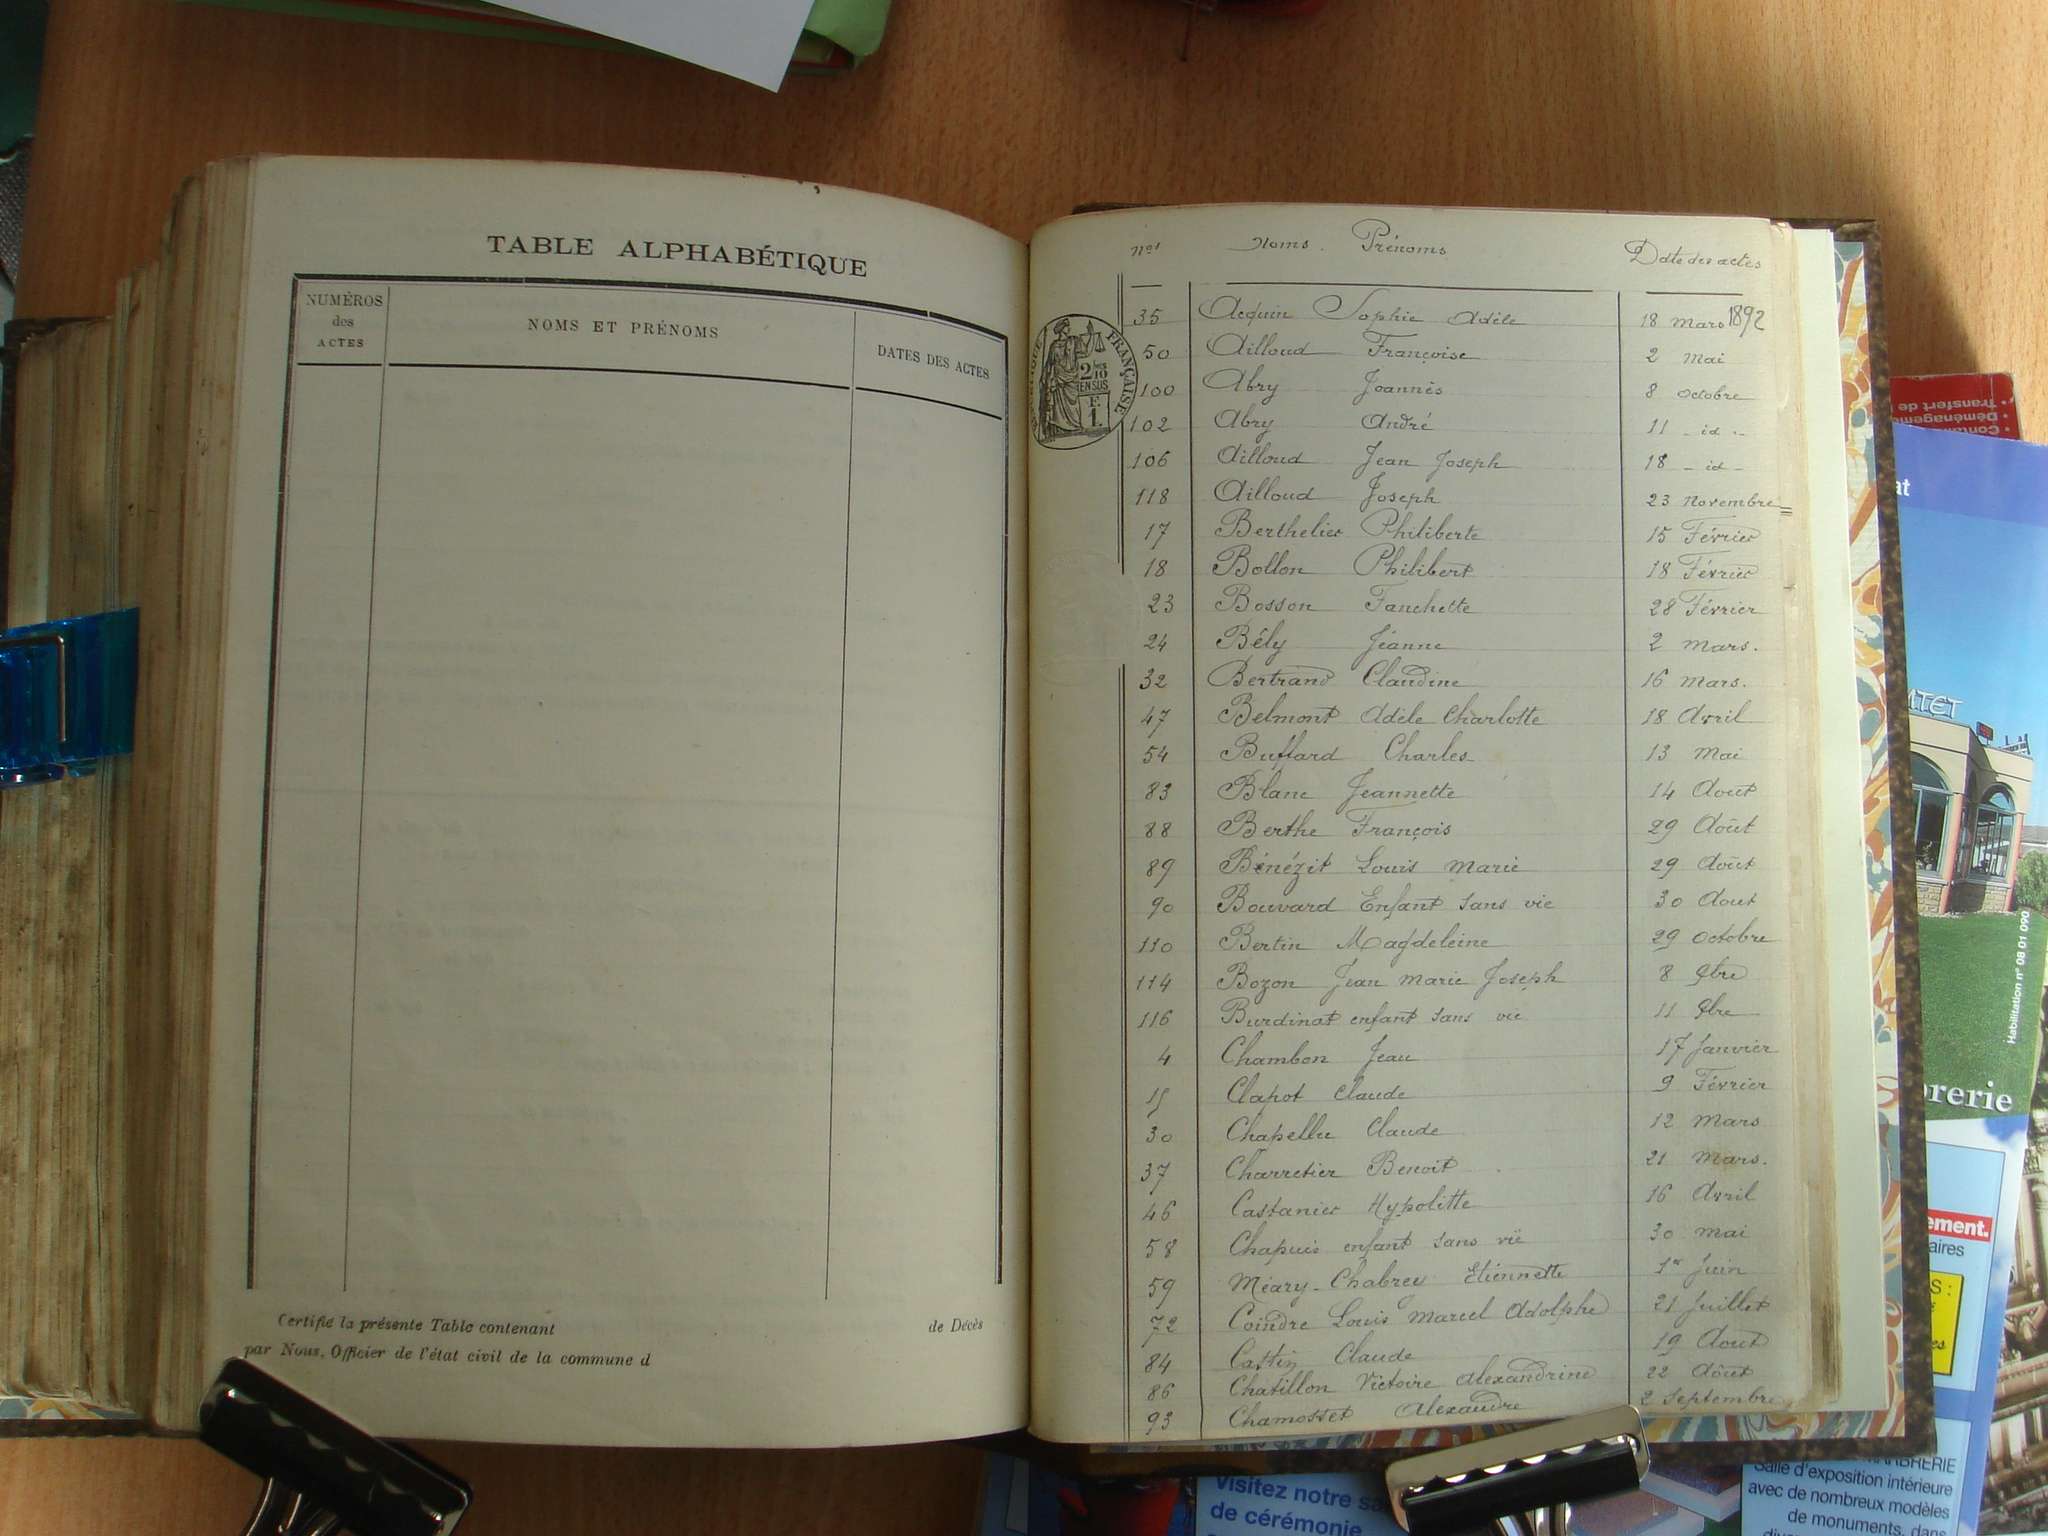 TABLE ALPHABÉTIQUE
NUMÉROS
des
ACTES
NOMS ET PRÉNOMS
DATES DES ACTES
Certifié la présente Table contenant de Décès
par Nous, Officier de l'état civil de la commune d
nos Noms. Prénoms Date des actes
35 Acquin Sophie Adèle 18 Mars 1892
50 Ailloud Françoise 2 Mai
100 Abry Joannès 8 octobre
102 Abry André 11 - id -
106 Ailloud Jean Joseph 18 - id -
118 Ailloud Joseph 23 Novembre
17 Berthelier Philiberte 15 Février
18 Bollon Philibert 18 Février
23 Bosson Fanchette 28 Février
24 Bély Jeanne 2 Mars.
32 Bertrand Claudine 16 Mars.
47 Belmont Adèle Charlotte 18 Avril
54 Buffard Charles 13 Mai
83 Blanc Jeannette 14 Aout
88 Berthe François 29 Août
89 Bénézit Louis Marie 29 Août
90 Bouvard Enfant sans vie 30 Aout
110 Bertin Magdeleine 29 octobre
114 Bozon Jean Marie Joseph 8 9bre
116 Burdinat enfant sans vie 11 9bre
4 Chambon Jean 17 Janvier
15 Clapot Claude 9 Février
30 Chapellu Claude 12 Mars
37 Charretier Benoit 21 Mars.
46 Castanier Hypolitte 16 Avril
58 Chapuis enfant sans vie 30 Mai
59 Méary-Chabrey Etiennette 1er Juin
72 Coindre Louis Marcel Adolphe 21 Juillet
84 Claude 19 Aout
86 Chatillon Victoire Alexandrine 22 Août
93 Chamosset Alexandre 2 Septembre
FRANÇAISE
2/10
EN SUS
F.
1.
Transfert de
Déménageme
at
Habilitation n° 08 01 090
brerie
ement.
aires
S :
es
Visitez notre sa
de cérémonie
ARBRERIE
Salle d'exposition intérieure
avec de nombreux modèles
de monuments, dans